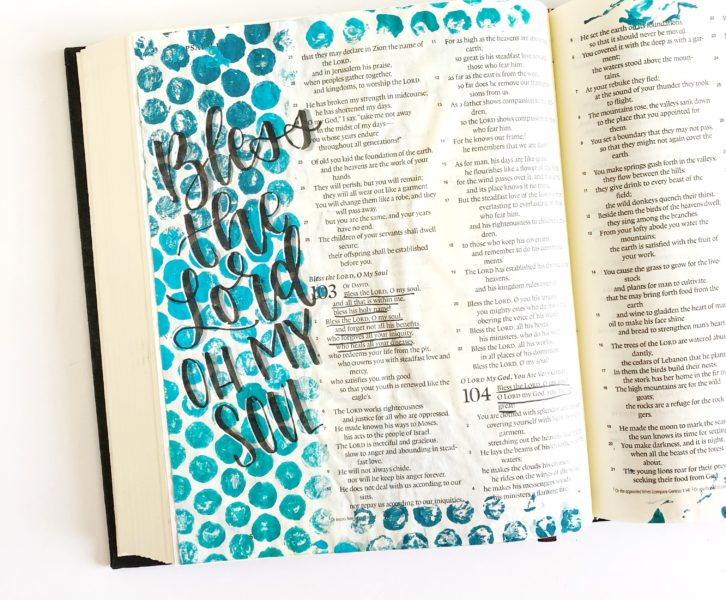 PSALM
Bless
the
Lord
OH MY
SOUL
21 that they may declare in Zion the name of
the LORD,
and in Jerusalem his praise,
22 when peoples gather together,
and kingdoms, to worship the LORD.
23 He has broken my strength in midcourse;
he has shortened my days.
God," I say, "take me not away
in the midst of my days—
whose years endure
throughout all generations!"
25 Of old you laid the foundation of the earth,
and the heavens are the work of your
hands.
26 They will perish, but you will remain;
they will all wear out like a garment.
You will change them like a robe, and they
will pass away,
27 but you are the same, and your years
have no end.
28 The children of your servants shall dwell
secure;
their offspring shall be established
before you.
Bless the LORD, O My Soul
OF DAVID.
103 Bless the LORD, O my soul,
and all that is within me,
bless his holy name!
2 Bless the LORD, O my soul,
and forget not all his benefits,
3 who forgives all your iniquity,
who heals all your diseases,
4 who redeems your life from the pit,
who crowns you with steadfast love and
mercy,
5 who satisfies you with good
so that your youth is renewed like the
eagle's.
6 The LORD works righteousness
and justice for all who are oppressed.
7 He made known his ways to Moses,
his acts to the people of Israel.
8 The LORD is merciful and gracious,
slow to anger and abounding in stead-
fast love.
9 He will not always chide,
nor will he keep his anger forever.
10 He does not deal with us according to our
sins,
nor repay us according to our iniquities.
11 For as high as the heavens are above the
earth,
so great is his steadfast love toward
those who fear him;
12 as far as the east is from the west,
so far does he remove our transgres-
sions from us.
13 As a father shows compassion to his chil-
dren,
so the LORD shows compassion to those
who fear him.
14 For he knows our frame;
he remembers that we are dust.
15 As for man, his days are like grass;
he flourishes like a flower of the field;
16 for the wind passes over it, and it is gone,
and its place knows it no more.
17 But the steadfast love of the LORD is from
everlasting to everlasting on those
who fear him,
and his righteousness to children's chil-
dren,
18 to those who keep his covenant
and remember to do his command-
ments
19 The LORD has established his throne in the
heavens,
and his kingdom rules over all.
20 Bless the LORD, O you his angels,
you mighty ones who do his word,
obeying the voice of his word!
21 Bless the LORD, all his hosts,
his ministers, who do his will!
22 Bless the LORD, all his works,
in all places of his dominion.
Bless the LORD, O my soul!
O LORD My God, You Are Very Great
104 Bless the LORD, O my soul!
O LORD my God, you are very
great!
You are clothed with splendor and majesty,
2 covering yourself with light as with a
garment,
stretching out the heavens like a tent.
3 He lays the beams of his chambers on the
waters;
he makes the clouds his chariot;
he rides on the wings of the wind;
4 he makes his messengers winds,
his ministers a flaming fire.
5 He set the earth on its foundations,
so that it should never be moved.
6 You covered it with the deep as with a gar-
ment;
the waters stood above the moun-
tains.
7 At your rebuke they fled;
at the sound of your thunder they took
to flight.
8 The mountains rose, the valleys sank down
to the place that you appointed for
them.
9 You set a boundary that they may not pass,
so that they might not again cover the
earth.
10 You make springs gush forth in the valleys;
they flow between the hills;
11 they give drink to every beast of the
field;
the wild donkeys quench their thirst.
12 Beside them the birds of the heavens dwell;
they sing among the branches.
13 From your lofty abode you water the
mountains;
the earth is satisfied with the fruit of
your work.
14 You cause the grass to grow for the live-
stock
and plants for man to cultivate,
that he may bring forth food from the
earth
15 and wine to gladden the heart of man,
oil to make his face shine
and bread to strengthen man's heart.
16 The trees of the LORD are watered abun-
dantly,
the cedars of Lebanon that he planted.
17 In them the birds build their nests;
the stork has her home in the fir trees.
18 The high mountains are for the wild
goats;
the rocks are a refuge for the rock
badgers.
19 He made the moon to mark the seasons;
the sun knows its time for setting.
20 You make darkness, and it is night,
when all the beasts of the forest
about.
21 The young lions roar for their prey,
seeking their food from God.